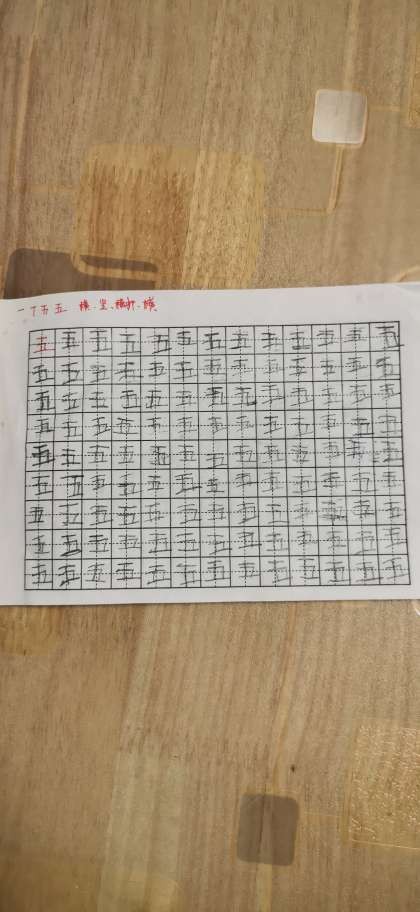 一丁五五 横、竖、横折、横
五五五五五五五五五五五五五
五五五五五五五五五五五五五
五五五五五五五五五五五五五
五五五五五五五五五五五五五
五五五五五五五五五五五五五
五五五五五五五五五五五五五
五五五五五五五五五五五五五
五五五五五五五五五五五五五
五五五五五五五五五五五五五